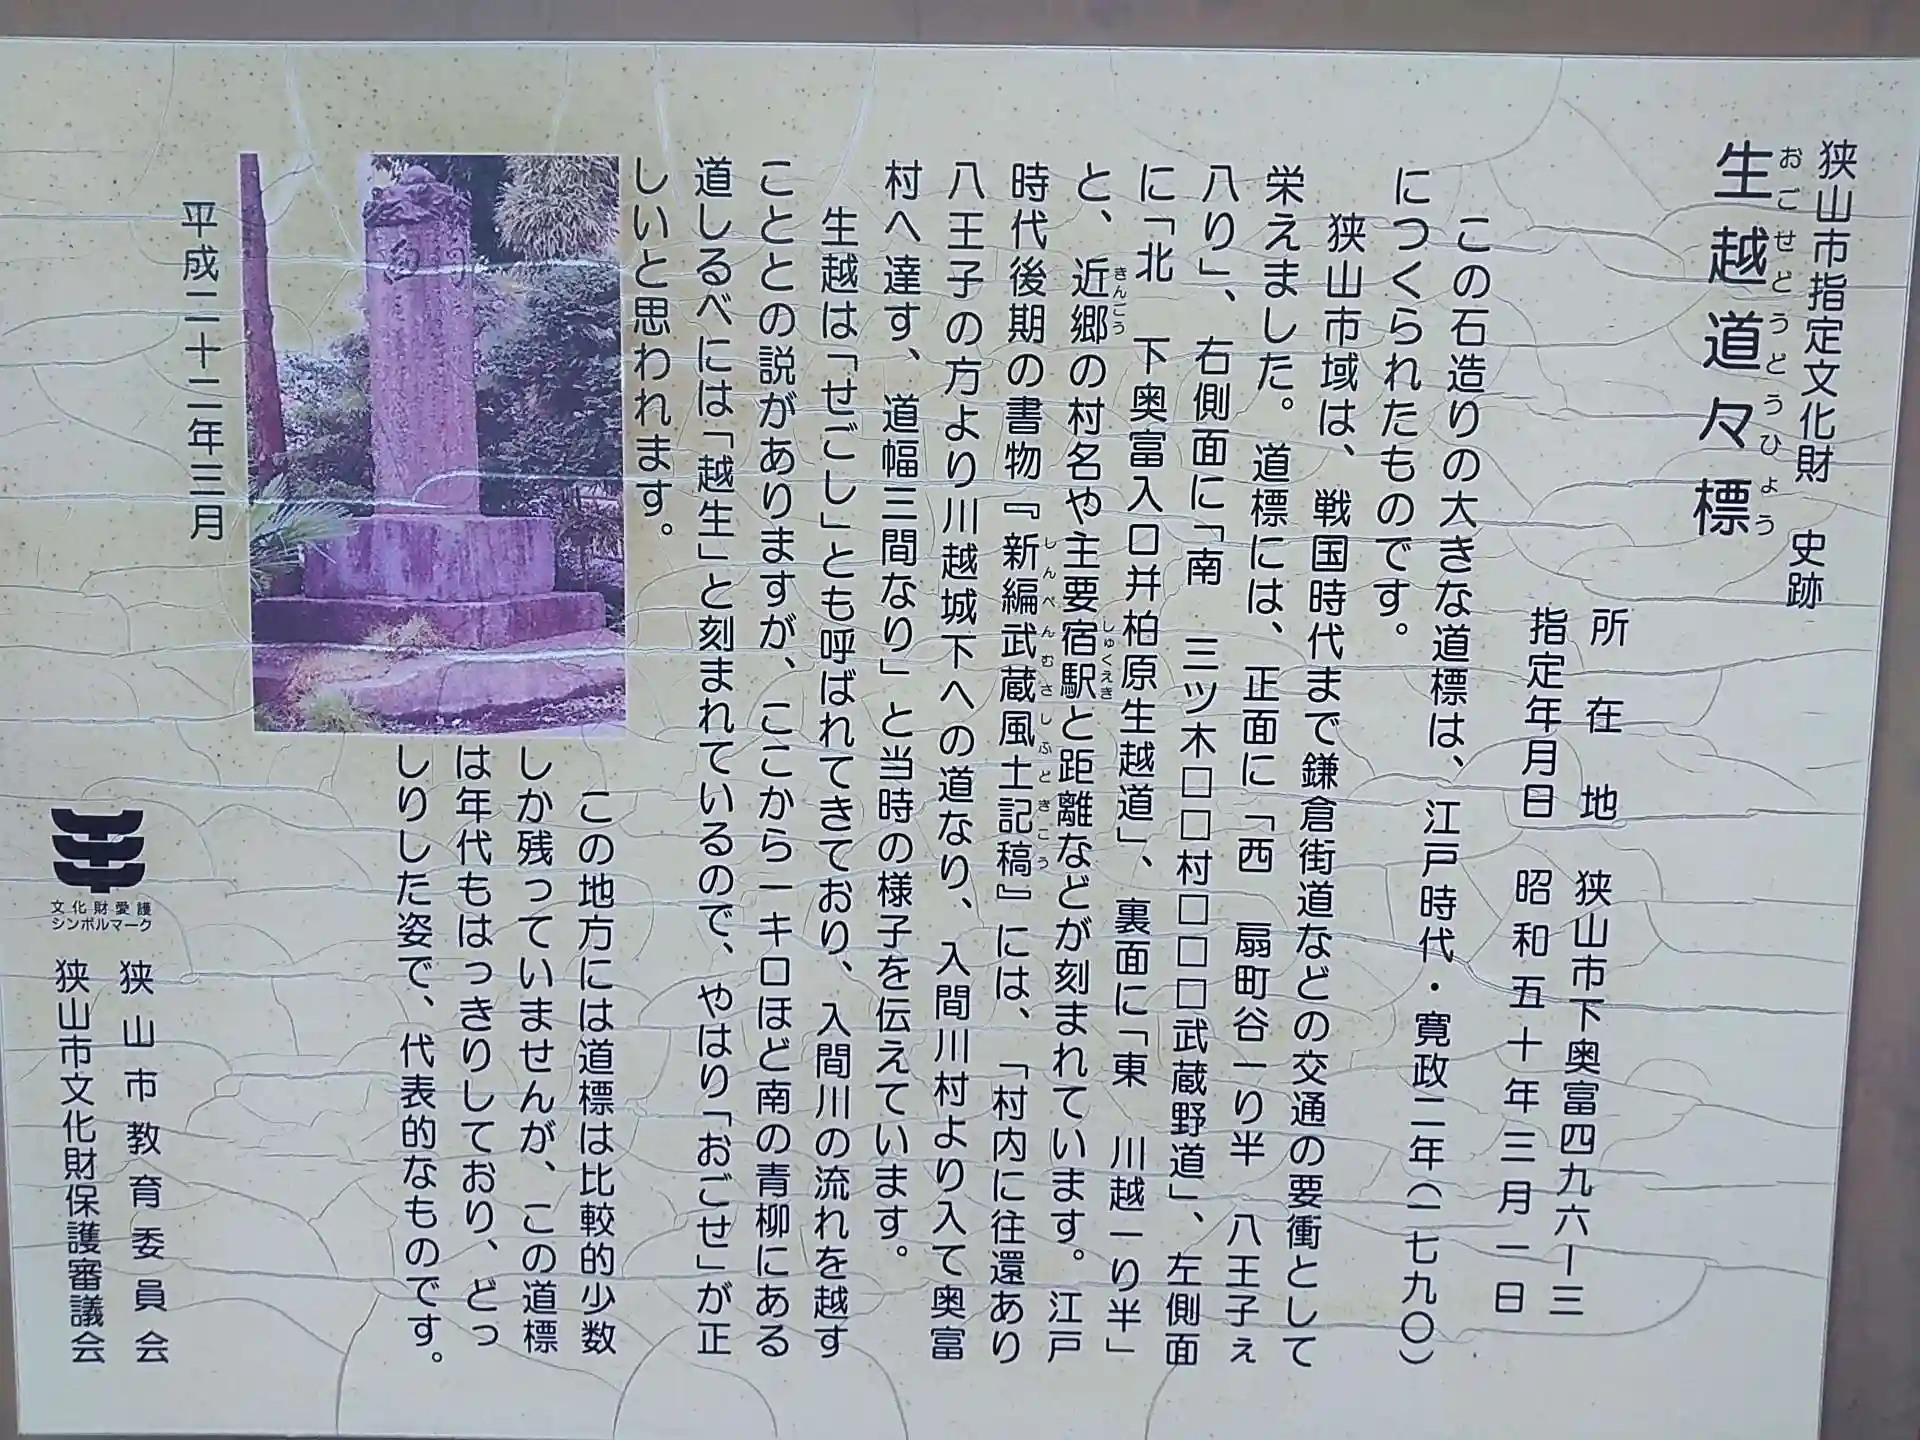 狭山市指定文化財　史跡
おごせどうどうひょう
生越道々標
所在地　狭山市下奥富四九六ー三
指定年月日　昭和五十年三月一日
この石造りの大きな道標は、江戸時代・寛政二年（一七九〇）
につくられたものです。
狭山市域は、戦国時代まで鎌倉街道などの交通の要衝として
栄えました。道標には、正面に「西　扇町谷一り半　八王子ぇ
八り」、右側面に「南　三ツ木□□村□□□武蔵野道」、左側面
に「北　下奥富入口并柏原生越道」、裏面に「東　川越一り半」
きんごう　しゅくえき
と、近郷の村名や主要宿駅と距離などが刻まれています。江戸
しんぺんむさしふどきこう
時代後期の書物『新編武蔵風土記稿』には、「村内に往還あり
八王子の方より川越城下への道なり、入間川村より入て奥富
村へ達す、道幅三間なり」と当時の様子を伝えています。
生越は「せごし」とも呼ばれてきており、入間川の流れを越す
こととの説がありますが、ここから一キロほど南の青柳にある
道しるべには「越生」と刻まれているので、やはり「おごせ」が正
しいと思われます。
この地方には道標は比較的少数
しか残っていませんが、この道標
は年代もはっきりしており、どっ
しりした姿で、代表的なものです。
平成二十二年三月
文化財愛護
シンボルマーク
狭山市教育委員会
狭山市文化財保護審議会